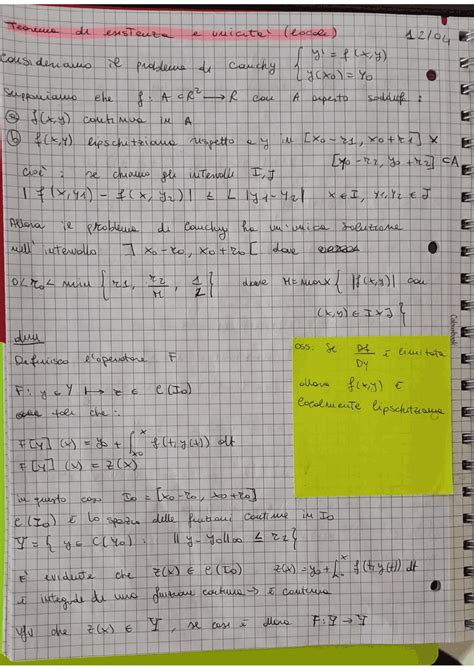 Teorema di esistenza e unicità (locale) 12/04
Consideriamo il problema di Cauchy { y' = f(x,y)
y(x0) = y0
Supponiamo che f: A ⊂ R² → R con A aperto soddisfi:
(a) f(x,y) continua in A
(b) f(x,y) lipschitziana rispetto a y in [x0-r1, x0+r1] ×
[y0-r2, y0+r2] ⊂ A
Cioè: se chiamo gli intervalli I, J
|f(x,y1) - f(x,y2)| ≤ L |y1-y2| x ∈ I, y1,y2 ∈ J
Allora il problema di Cauchy ha un'unica soluzione
nell'intervallo ]x0-r0, x0+r0[ dove
0<r0< min { r1, r2/M, 1/L } dove M=max{ |f(x,y)| con
(x,y) ∈ I×J }
dim
Definisco l'operatore F
F: y ∈ Y ↦ z ∈ C(I0)
tale che:
F[y](x) = y0 + ∫x0^x f(t,y(t)) dt
F[y](x) = z(x)
in questo caso I0 = [x0-r0, x0+r0]
C(I0) è lo spazio delle funzioni continue in I0
Y = { y ∈ C(I0) : ||y-y0||∞ ≤ r2 }
È evidente che z(x) ∈ C(I0) z(x) = y0 + ∫x0^x f(t,y(t)) dt
è integrale di una funzione continua → è continua
che z(x) ∈ Y, se così è allora F: Y → Y
oss: Se Df/Dy è limitata
allora f(x,y) è
localmente lipschitziana
Colourbook